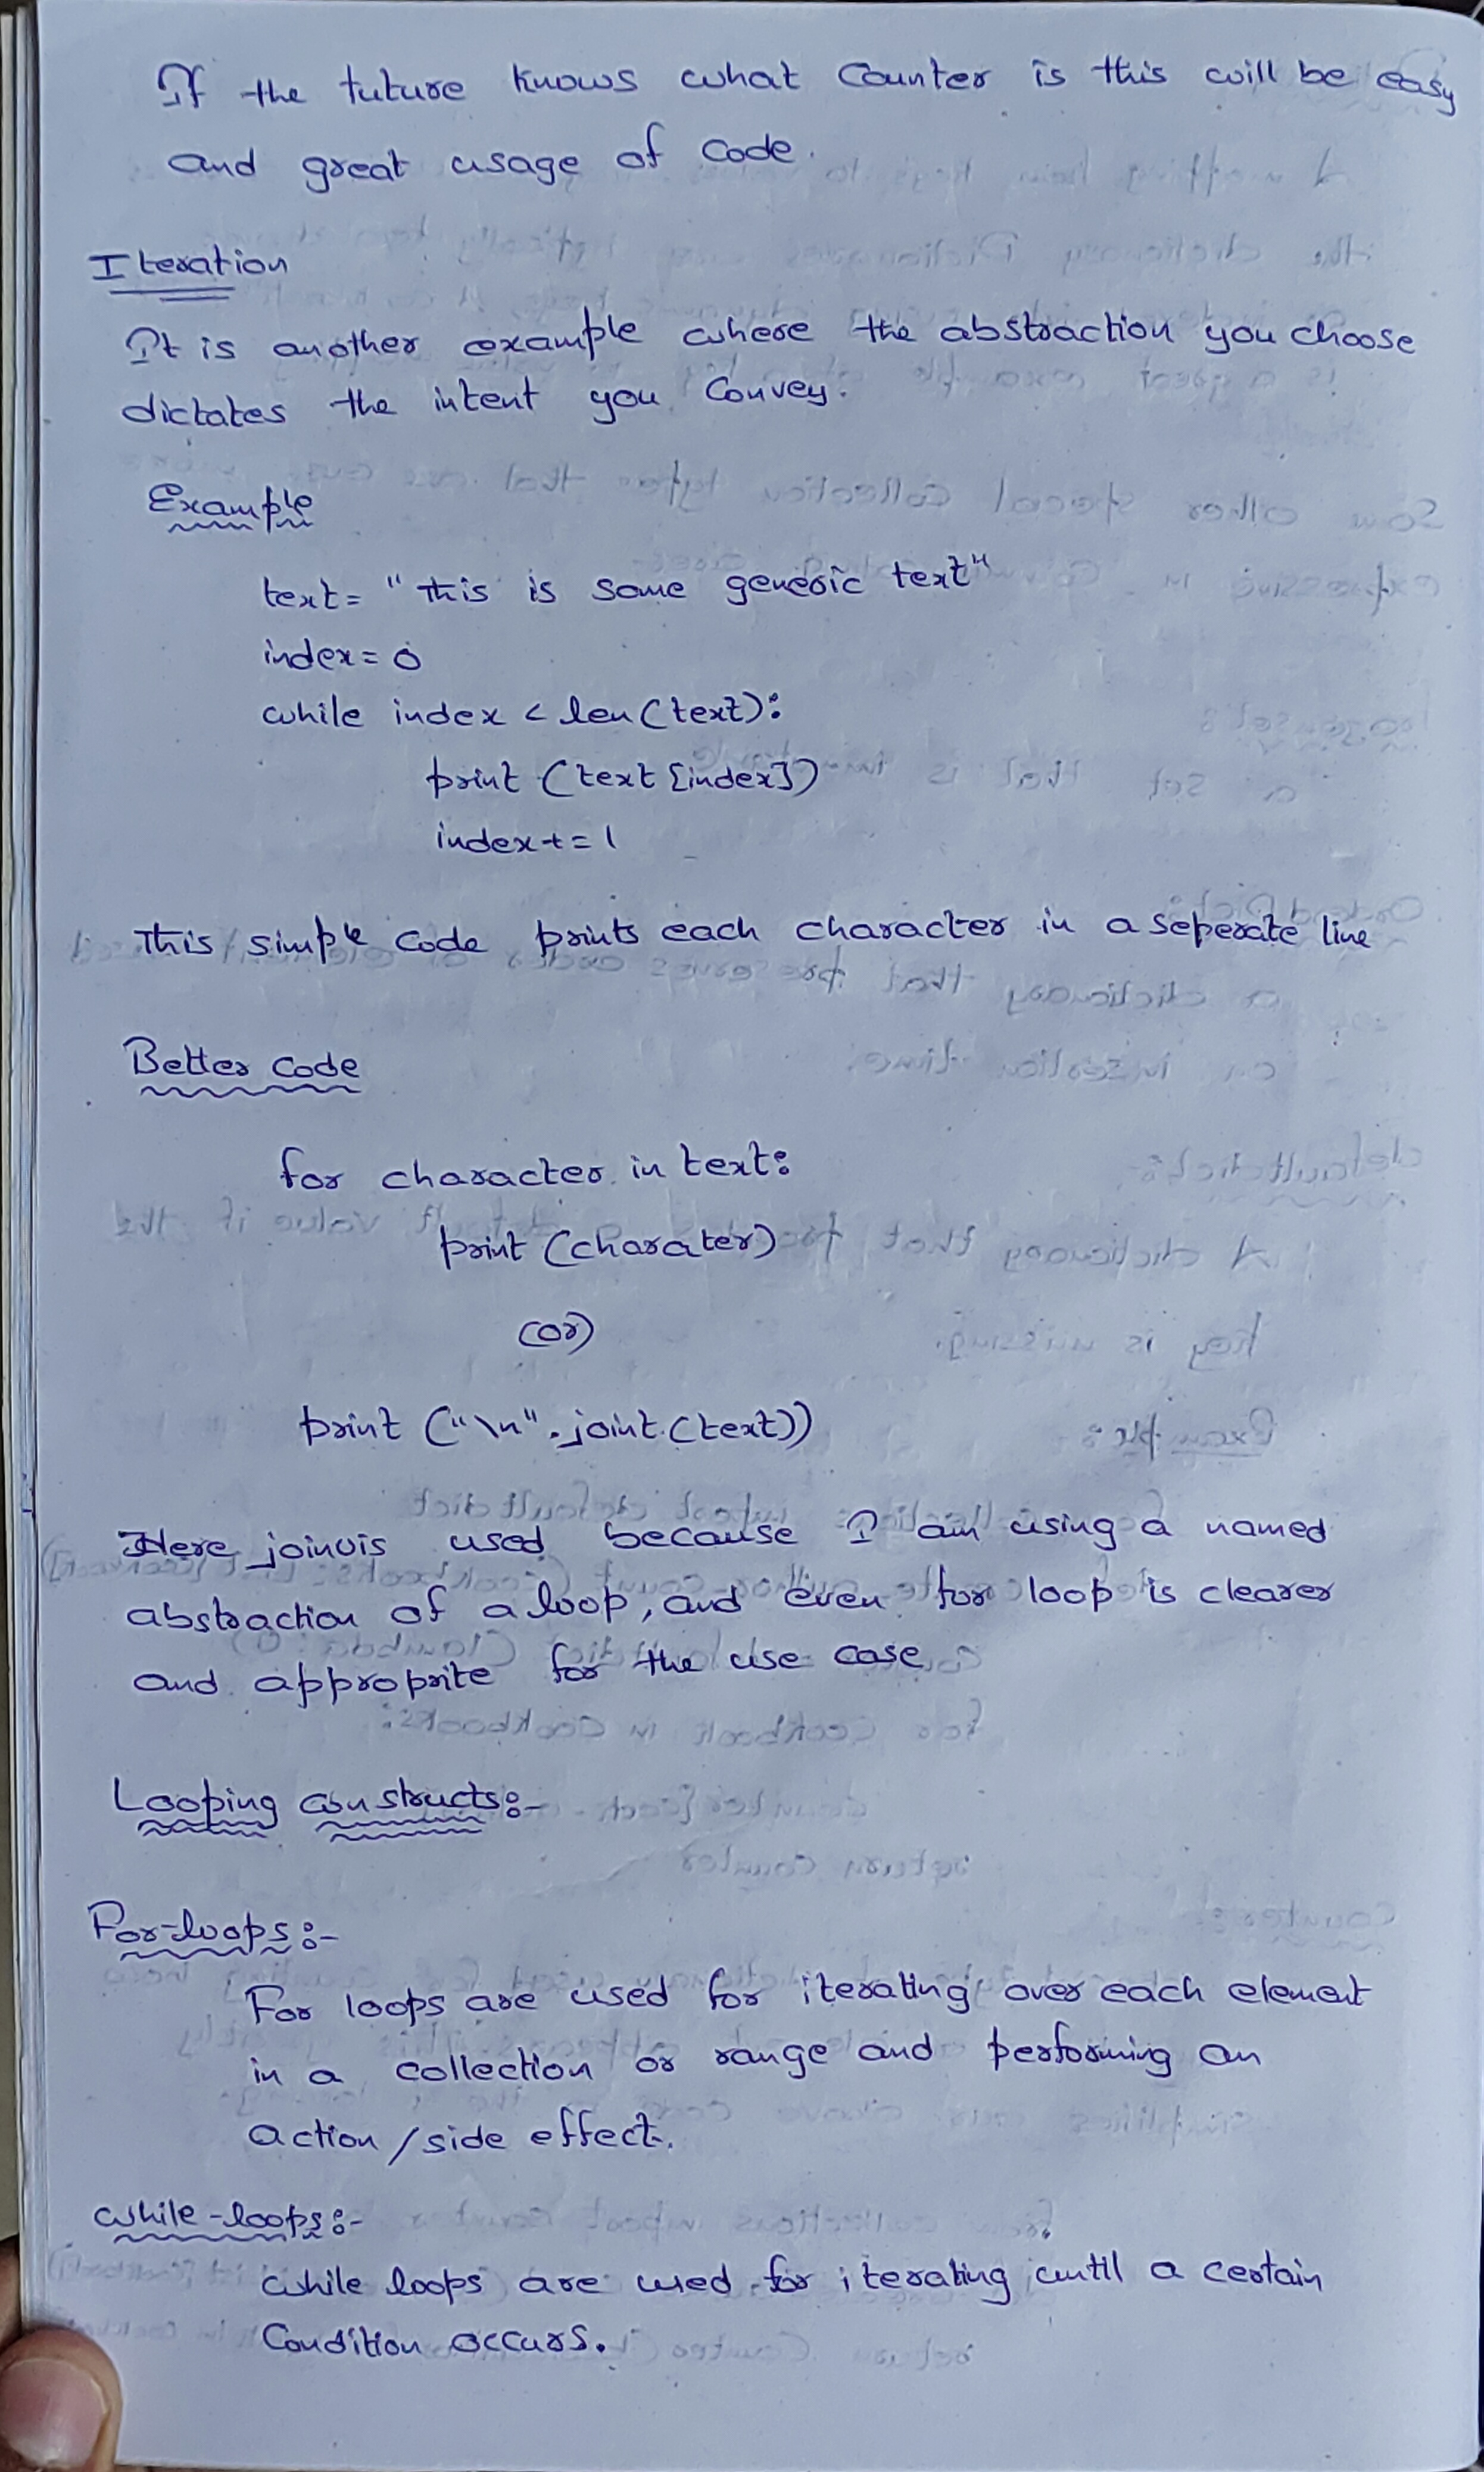 If the tuture knows what Counter is this will be easy
and great usage of code.
Iteration
It is another example where the abstraction you choose
dictates the intent you convey.
Example
text = "this is some generic text"
index = 0
while index < len(text):
print (text [index])
index += 1
This simple code prints each character in a seperate line
Better code
for character in text:
print (charater)
(or)
print ("\n".joint.(text))
Here joinvis used because I am using a named
abstraction of a loop, and even for loop is clearer
and approprite for the use case
Looping constructs:-
For-loops:-
For loops are used for iterating over each element
in a collection or range and performing an
action/side effect.
while-loops:-
while loops are used for iterating until a certain
Condition occurs.